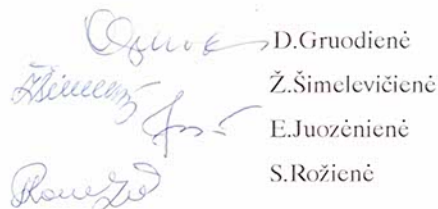 D.Gruodienė
Ž.Šimelevičienė
E.Juozėnienė
S.Rožienė